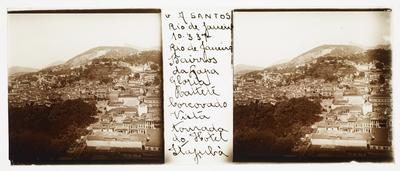 A SANTOS
Rio de Janeiro
10.3.37
Rio de Janeiro
Bairros
da Lapa
Gloria
Cattete
corcovado
Vista
tomada
do Hotel
Itajubá